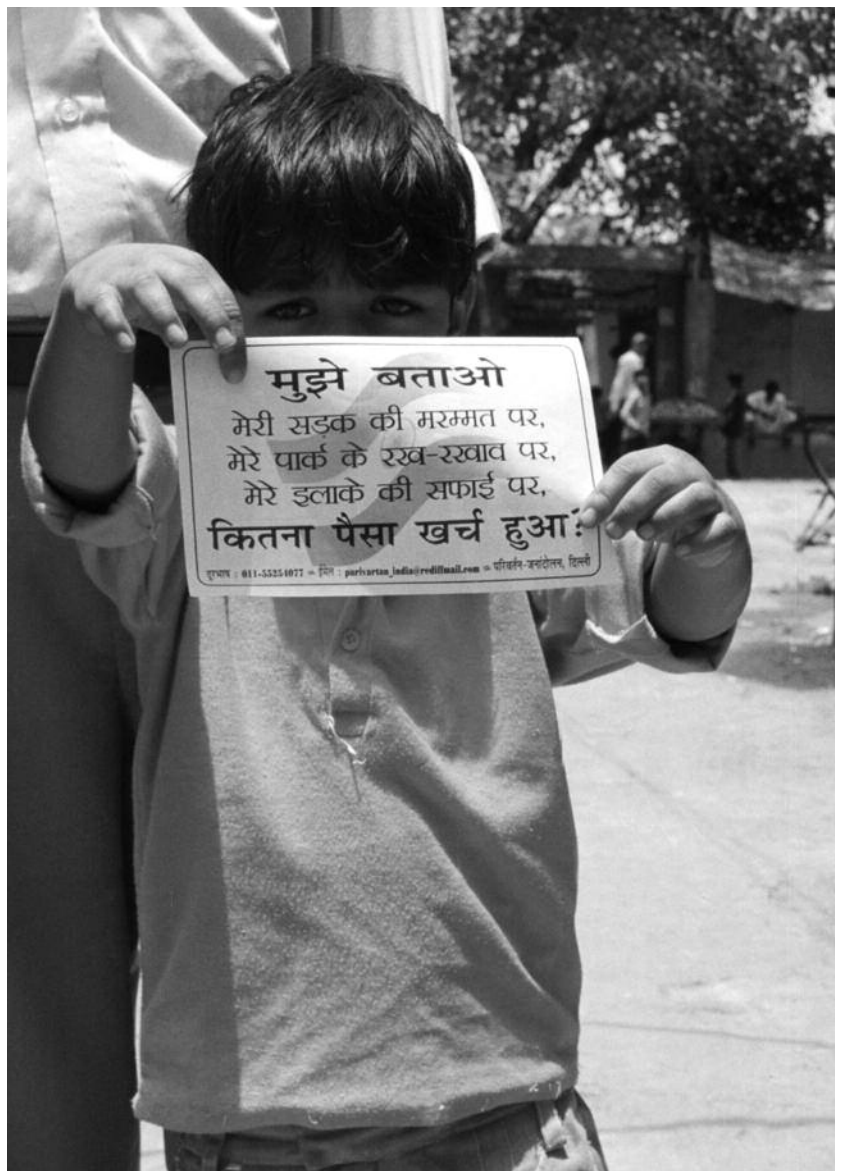 मुझे बताओ
मेरी सड़क की मरम्मत पर,
मेरे पार्क के रख-रखाव पर,
मेरे इलाके की सफाई पर,
कितना पैसा खर्च हुआ?
दूरभाष : 011-55254077 = ईमेल : parivartan_india@rediffmail.com = परिवर्तन-जनांदोलन, दिल्ली